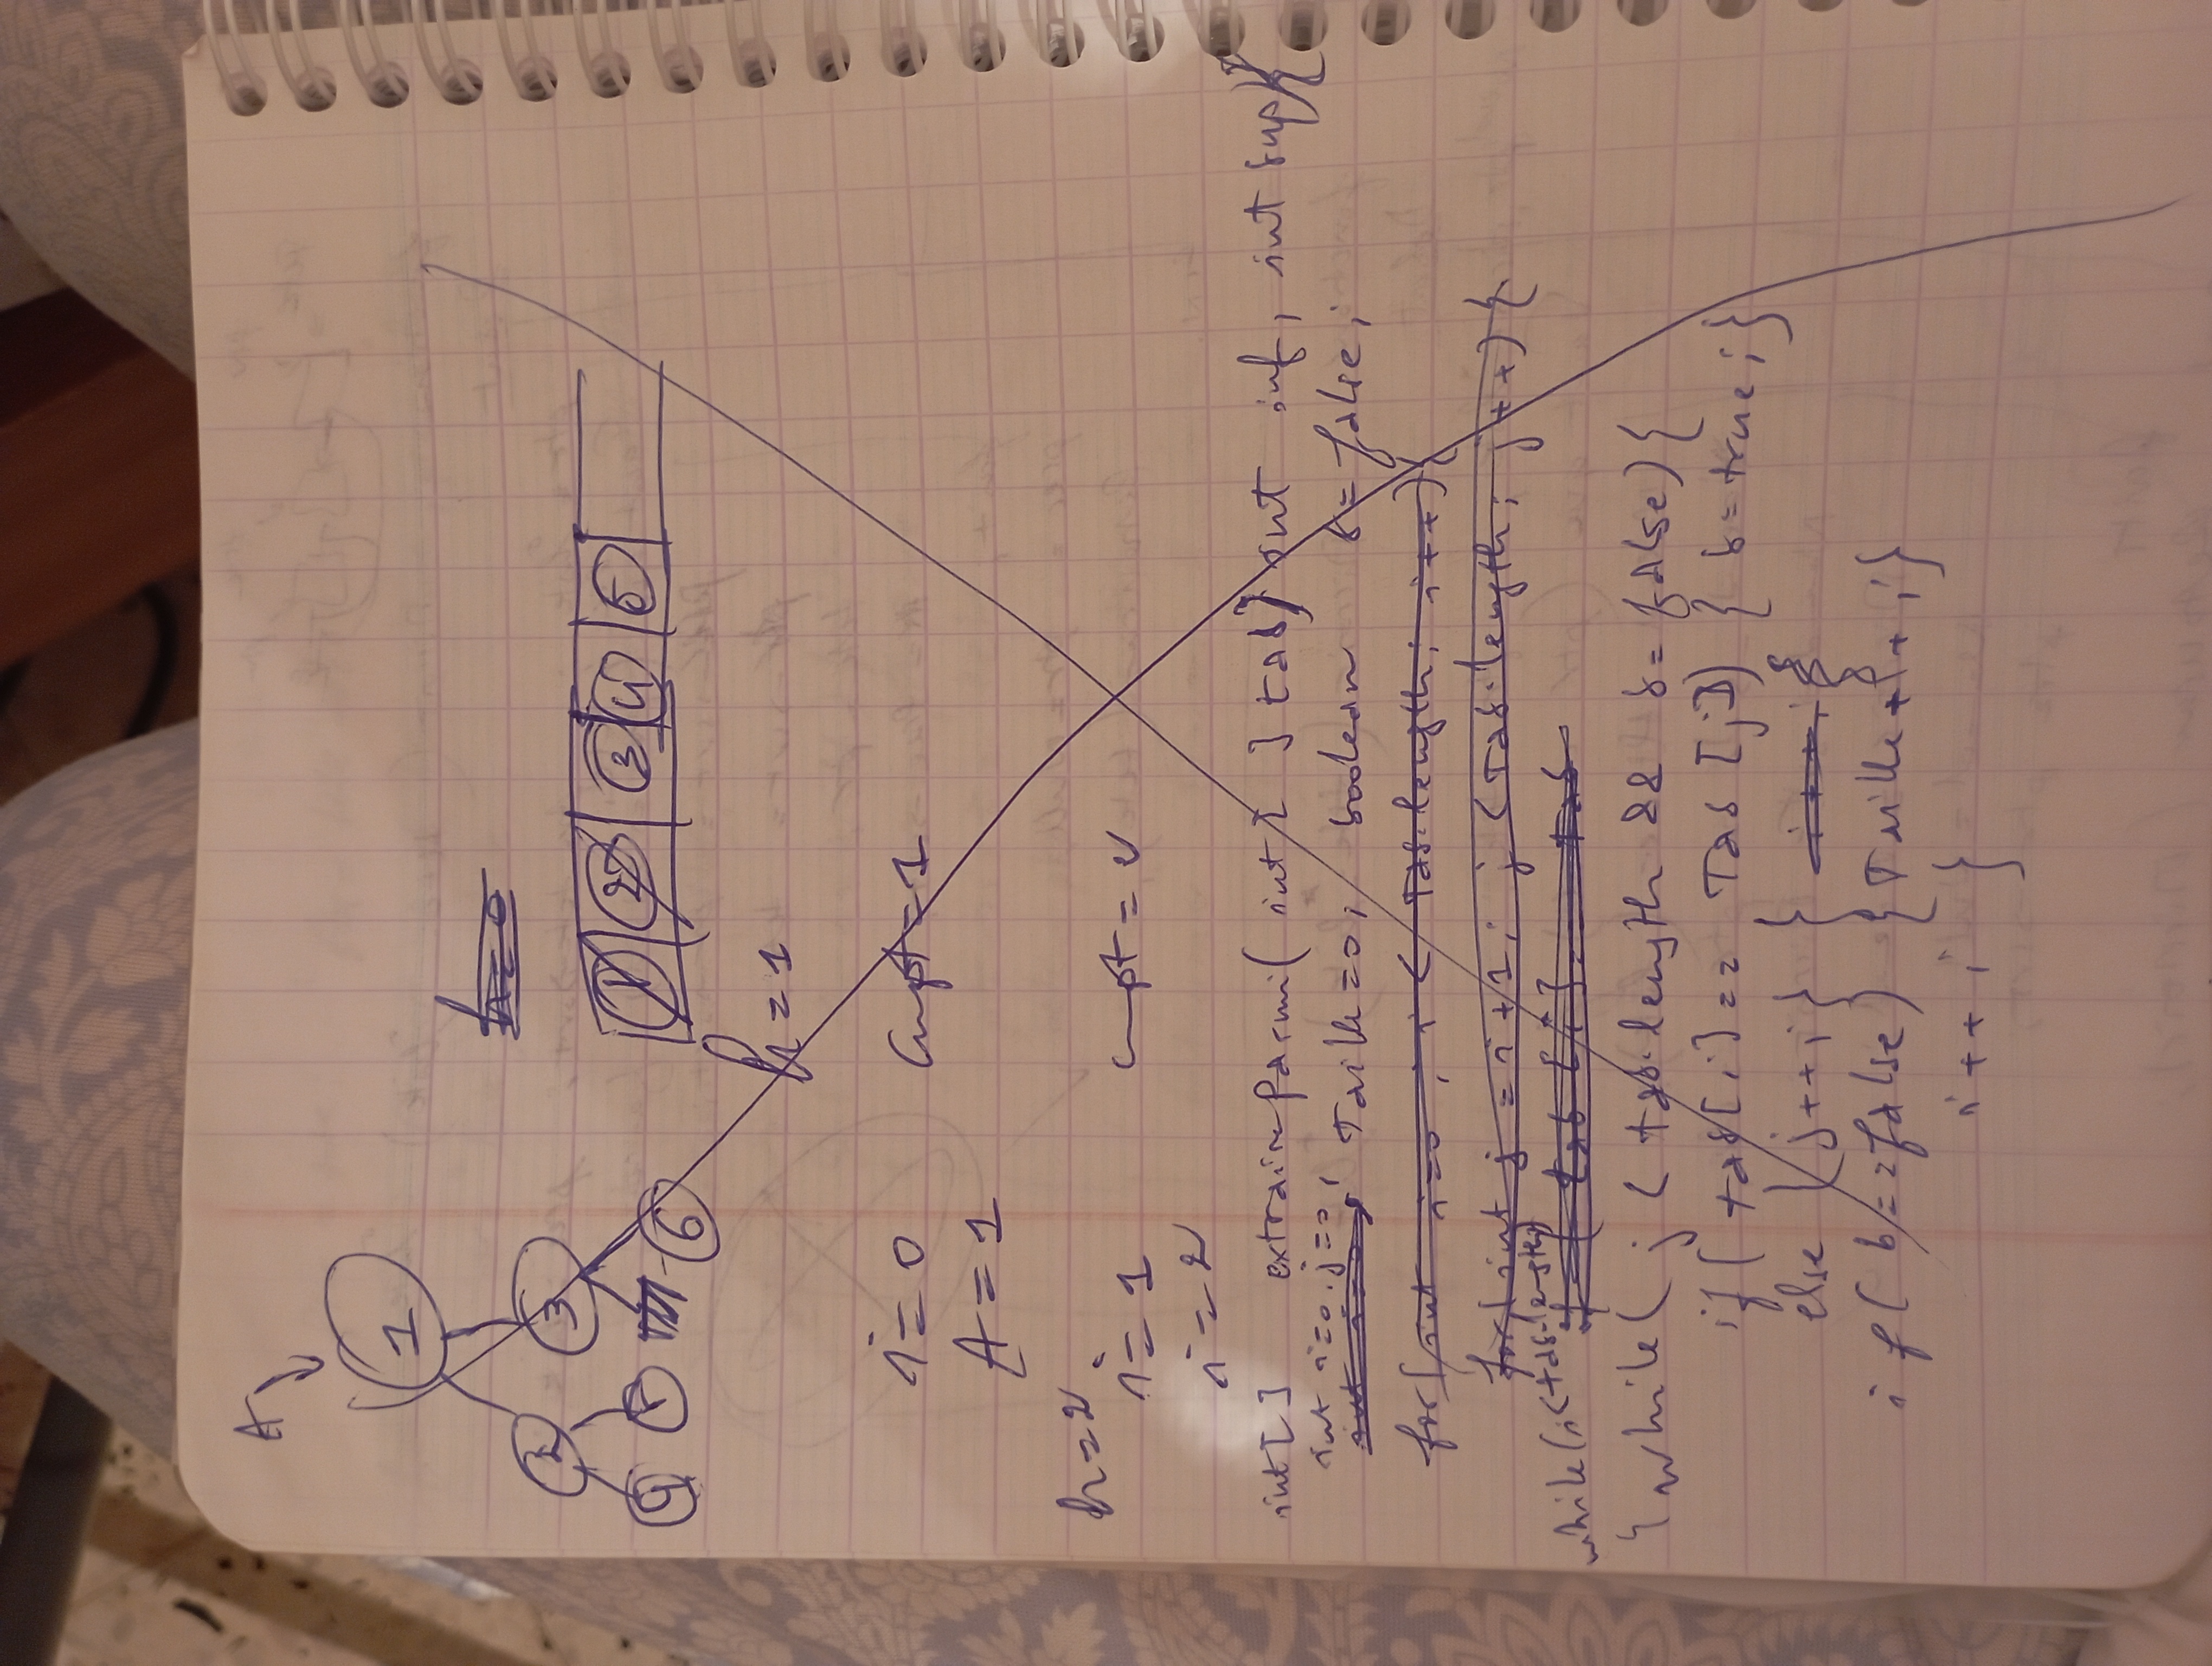 A
1
2 3
4 6
h=0
1 2 3 4 5
h=1
i=0 Cmpt=1
A=1
h=2
i=1 cmpt=2
i=2
int[] extraireparmi(int[] tab, int inf, int sup){
int i=0, j=0, Taille=0, boolean b=false;
for(int i=0, i<Tab.length; i++){
for(int j=i+1; j<Tab.length; j++){
while(i<tab.length)
{while(j<tab.length && b=false){
if(tab[i]==Tab[j]) {b=true;}
else {j++;} }
if(b==false) {Taille++;}
i++; }